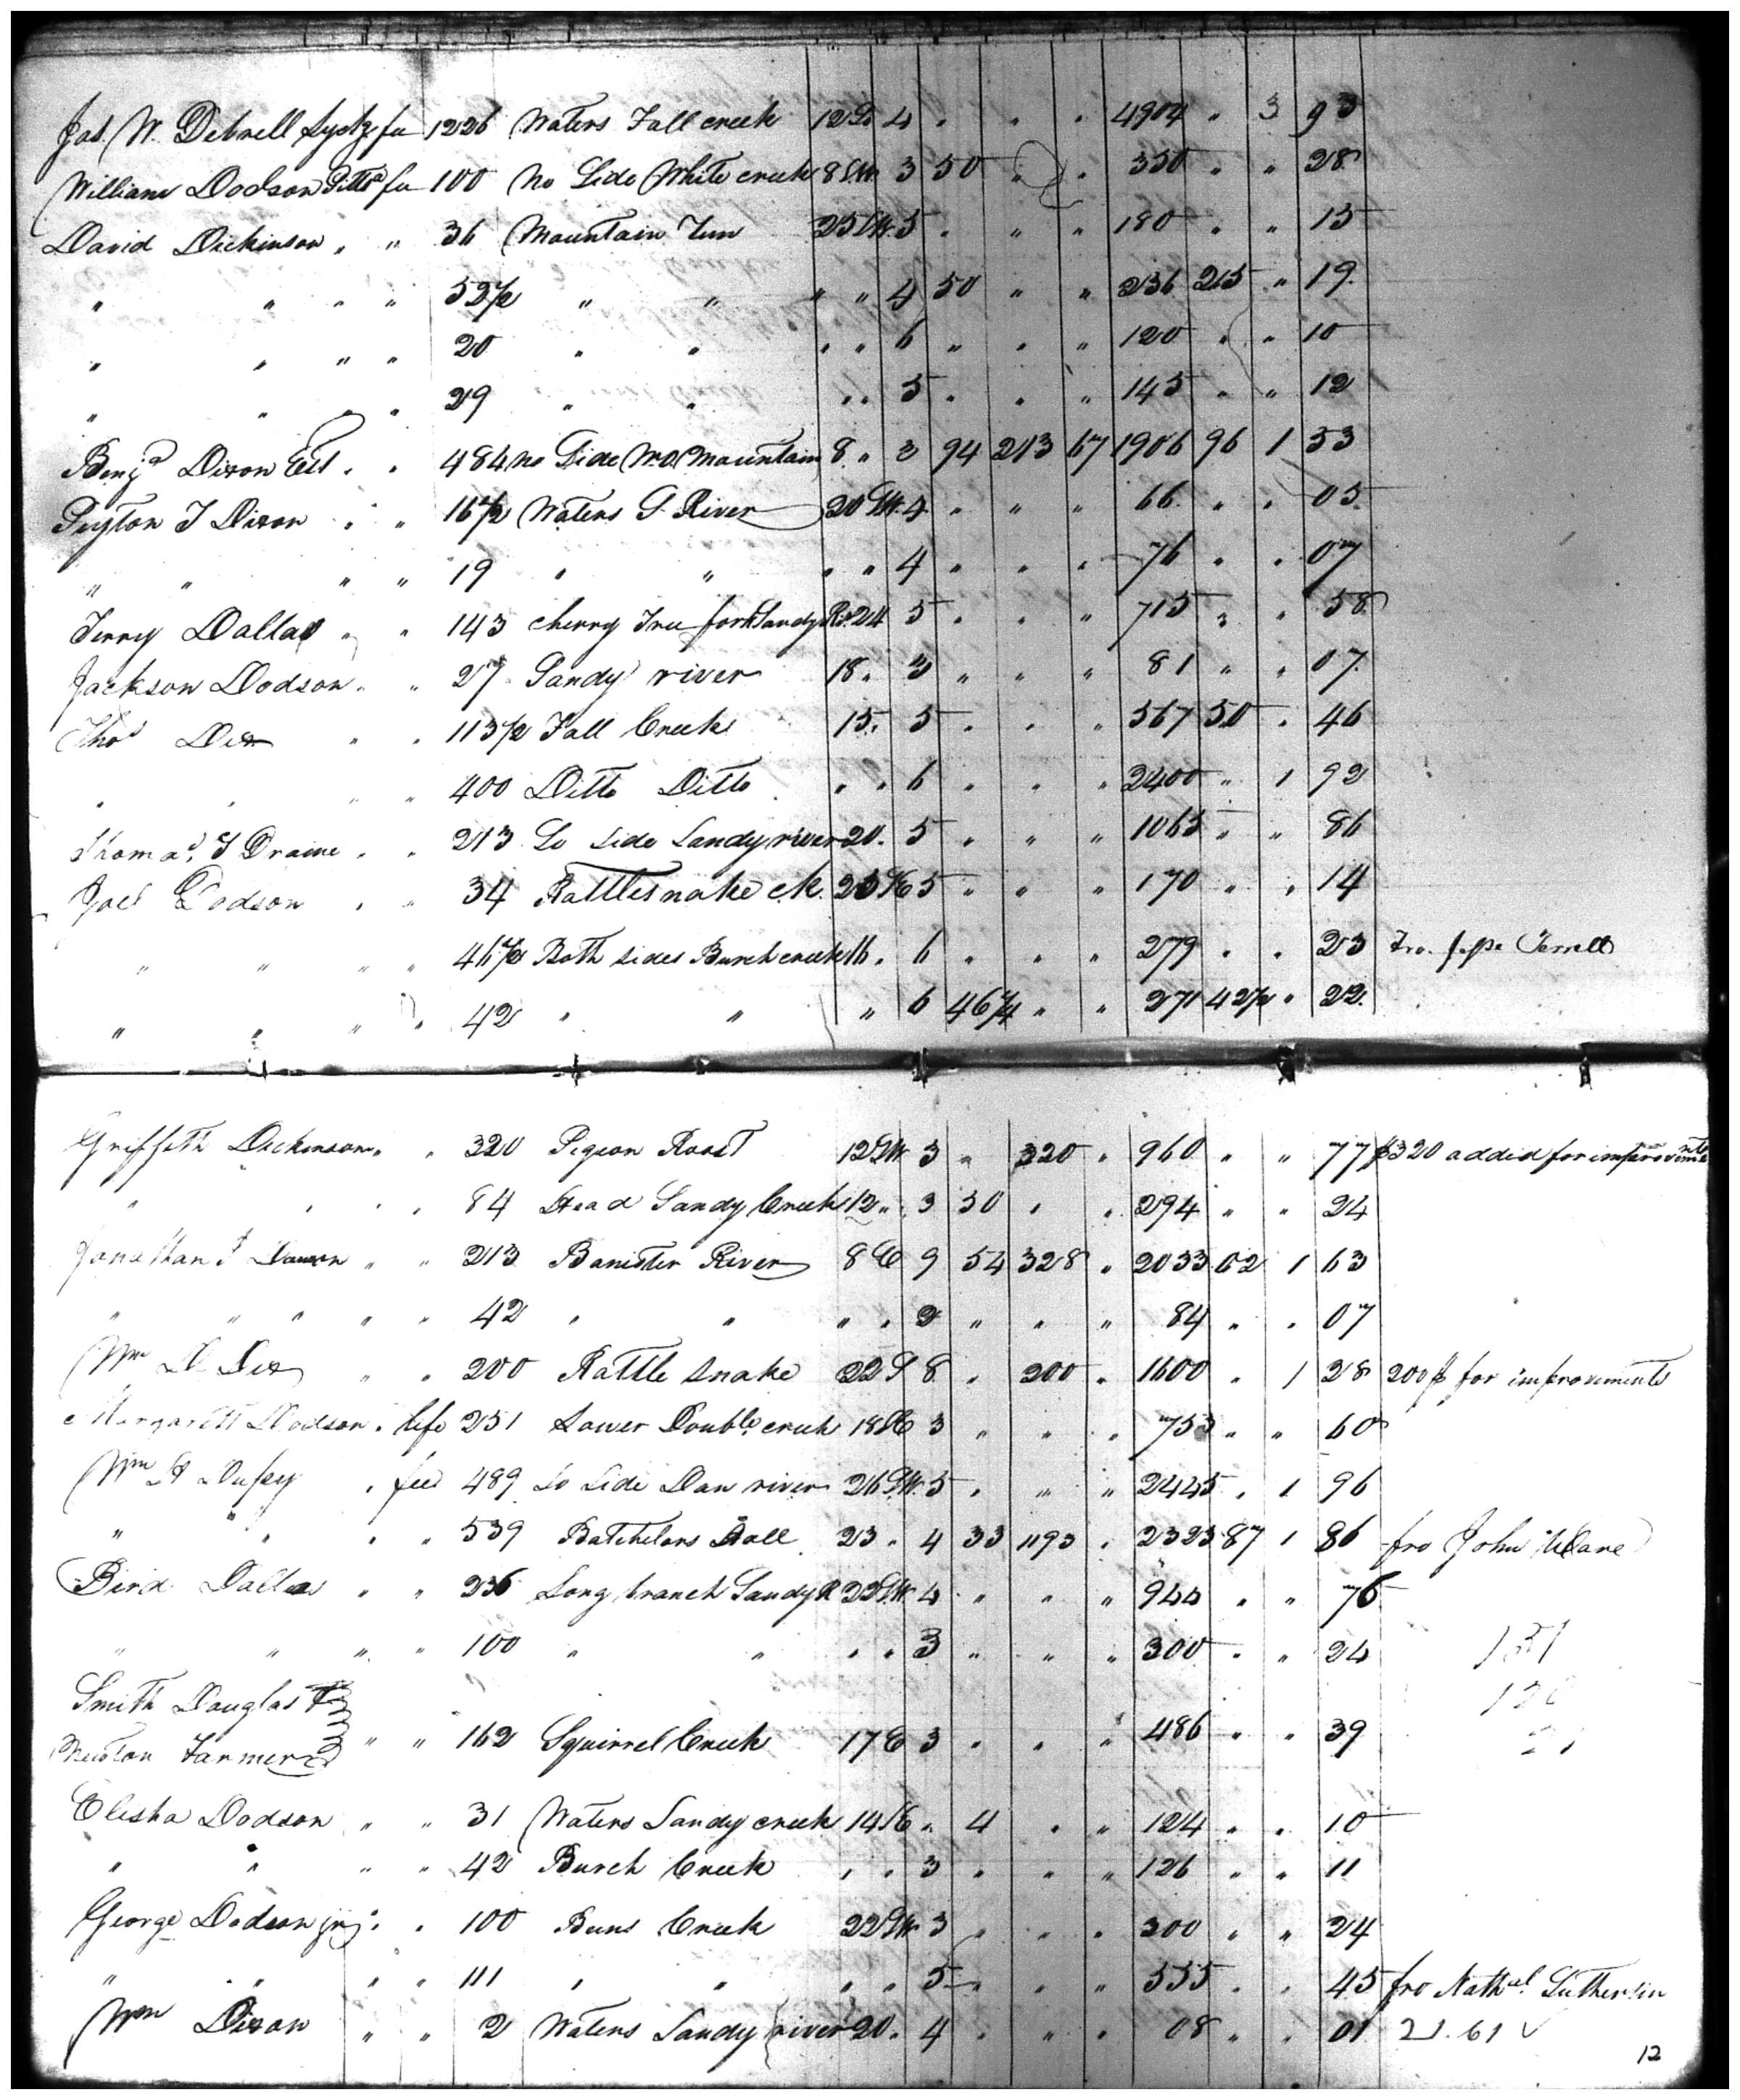 Jas. W. Dibrell Lynchg fee 1226 Waters Fall creek 12 So 4 " " " 4904 " 3 93
William Dodson Pittsa fee 100 No Side White creek 8 S.W. 3 50 " " 350 " " 28
David Dickinson " " 36 Mountain Run 25 S.W. 5 " " " 180 " " 15
" " " " 52 1/2 " " " " 4 50 " " 236 25 " 19
" " " " 20 " " " " 6 " " " 120 " " 10
" " " " 29 " " " " 5 " " " 145 " " 12
Benja Dixon Est " " 484 No Side W.O. Mountain 8 " 3 94 213 67 1906 96 1 53
Peyton J Dixon " " 16 1/2 Waters S. River 20 S.W. 4 " " " 66 " " 05
" " " " 19 " " " " 4 " " " 76 " " 07
Terry Dallas " " 143 Cherry Tree fork Sandy R. 24 5 " " " 715 " " 58
Jackson Dodson " " 27 Sandy river 18 " 3 " " " 81 " " 07
Thos Dix " " 113 1/2 Fall Creek 15 " 5 " " " 567 50 " 46
" " " " 400 Ditto Ditto " " 6 " " " 2400 " 1 92
Thomas J Draine " " 213 So Side Sandy river 20 " 5 " " " 1065 " " 86
Joel Dodson " " 34 Rattlesnake ck. 25 N.E 5 " " " 170 " " 14
" " " " 46 1/2 Both sides Burch creek 16 " 6 " " " 279 " " 23 Fro. Jesse Terrell
" " " " 42 " " " 6 46 1/4 " " 271 42 1/2 " 22
Griffeth Dickenson " " 320 Pigeon Roost 12 S.W 3 " 320 " 960 " " 77 $320 added for improvements
" " " " 84 Head Sandy Creek 12 " 3 50 " " 294 " " 24
Jonathan J Dawson " " 213 Banister River 8 E 9 54 328 " 2033 02 1 63
" " " " " 42 " " " " 2 " " " 84 " " 07
Wm D Dix " " 200 Rattle snake 22 S 8 " 200 " 1600 " 1 28 200$ for improvements
Margarett Dodson " life 251 Lower Double creek 18 N.E 3 " " " 753 " " 60
Wm H Dupey " fee 489 So Side Dan river 26 S.W. 5 " " " 2445 " 1 96
" " " " 539 Batchelors Hall 23 " 4 33 1193 " 2323 87 1 86 fro John
Bird Dallas " " 236 Long branch Sandy R 25 S.W. 4 " " " 944 " " 76
" " " " 100 " " " " 3 " " " 300 " " 24
Smith Douglas &
Newton Farmer " " 162 Squirrel Creek 17 E 3 " " " 486 " " 39
Elisha Dodson " " 31 Waters Sandy creek 14 N.E " 4 " " 124 " " 10
" " " " 42 Burch Creek " " 3 " " " 126 " " 11
George Dodson jr " " 100 Beens Creek 22 S.W. 3 " " " 300 " " 24
" " " " 111 " " " " 5 " " " 555 " " 45 fro Nathl. Sutherlin
Wm Dixon " " 2 Waters Sandy river 20 " 4 " " " 08 " " 01 21.61
12